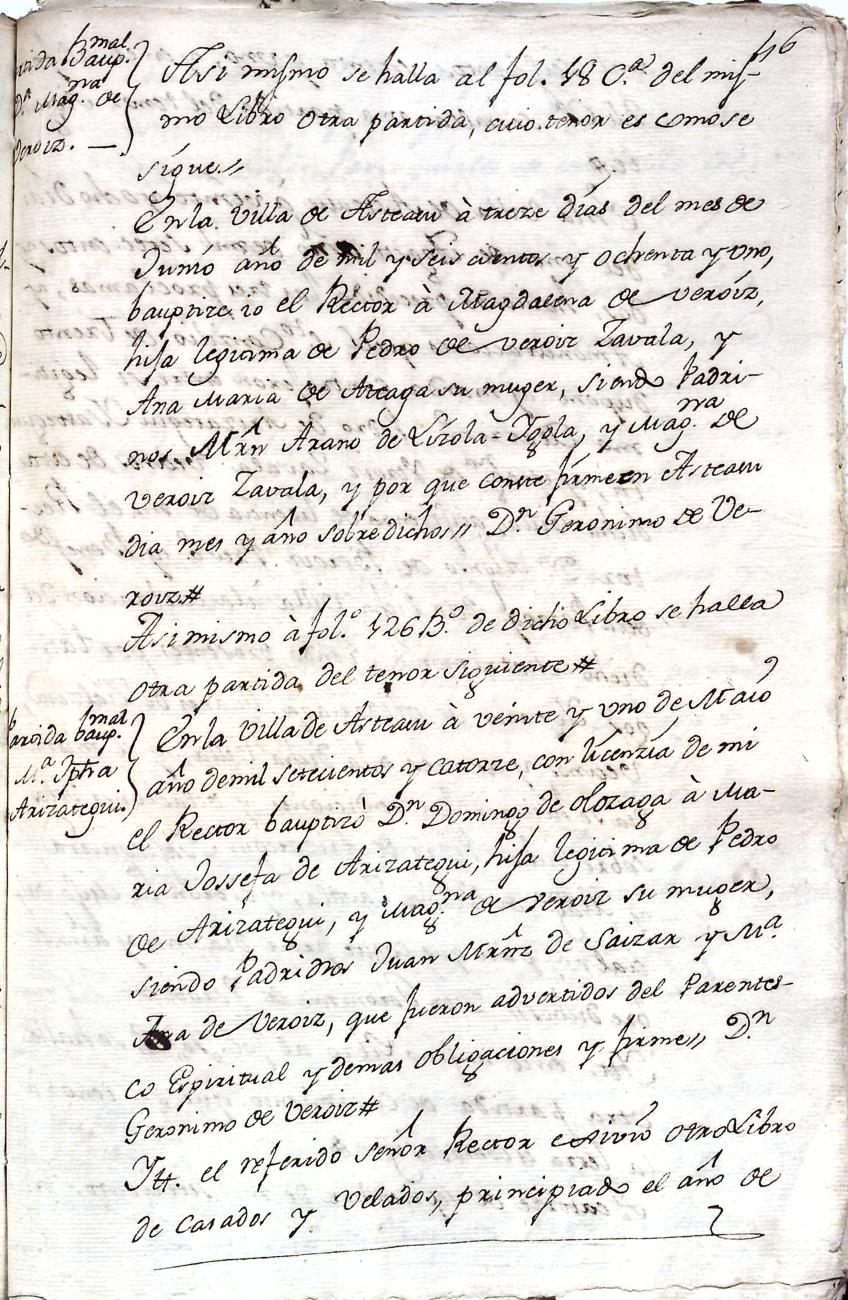 46
Partida bmal
baup.
Dª Magna de
Veroiz. —
Asi mismo se halla al fol. 18 O.ª del mis-
mo Libro otra partida, cuio tenor es como se
sigue,,
En la villa de Asteasu à treze días del mes de
Junio año de mil y seis cientos y ochenta y uno,
bauptize io el Rector à Magdalena de Veroiz,
hija legitima de Pedro de Veroiz Zavala, y
Ana Maria de Ateaga su muger, siendo Padri-
nos Mrñ Arano de Lizola-Ygola, y Magna de
Veroiz Zavala, y por que conste firme en Asteasu
dia mes y año sobre dichos,, Dn Geronimo de Ve-
roiz#
Asimismo à folº 126 Bº de dicho Libro se halla
otra partida del tenor siguiente#
Partida bmal
baup.
Mª Jpha
Arizategui.
En la villa de Asteasu à veinte y uno de Maio
año de mil setecientos y catorze, con licenzia de mi
el Rector bauptizò Dn Domingo de olozaga à Ma-
ria Josefa de Arizategui, hija legitima de Pedro
de Arizategui, y Magna de Veroiz su muger,
siendo Padrinos Juan Mrñz de Saizar y Mª
Ana de Veroiz, que fueron advertidos del Parentes-
co Espiritual y demas obligaciones y firme,, Dn
Geronimo de Veroiz#
Ytt. el referido señor Rector exivio otro Libro
de Casados y Velados, principiado el año de